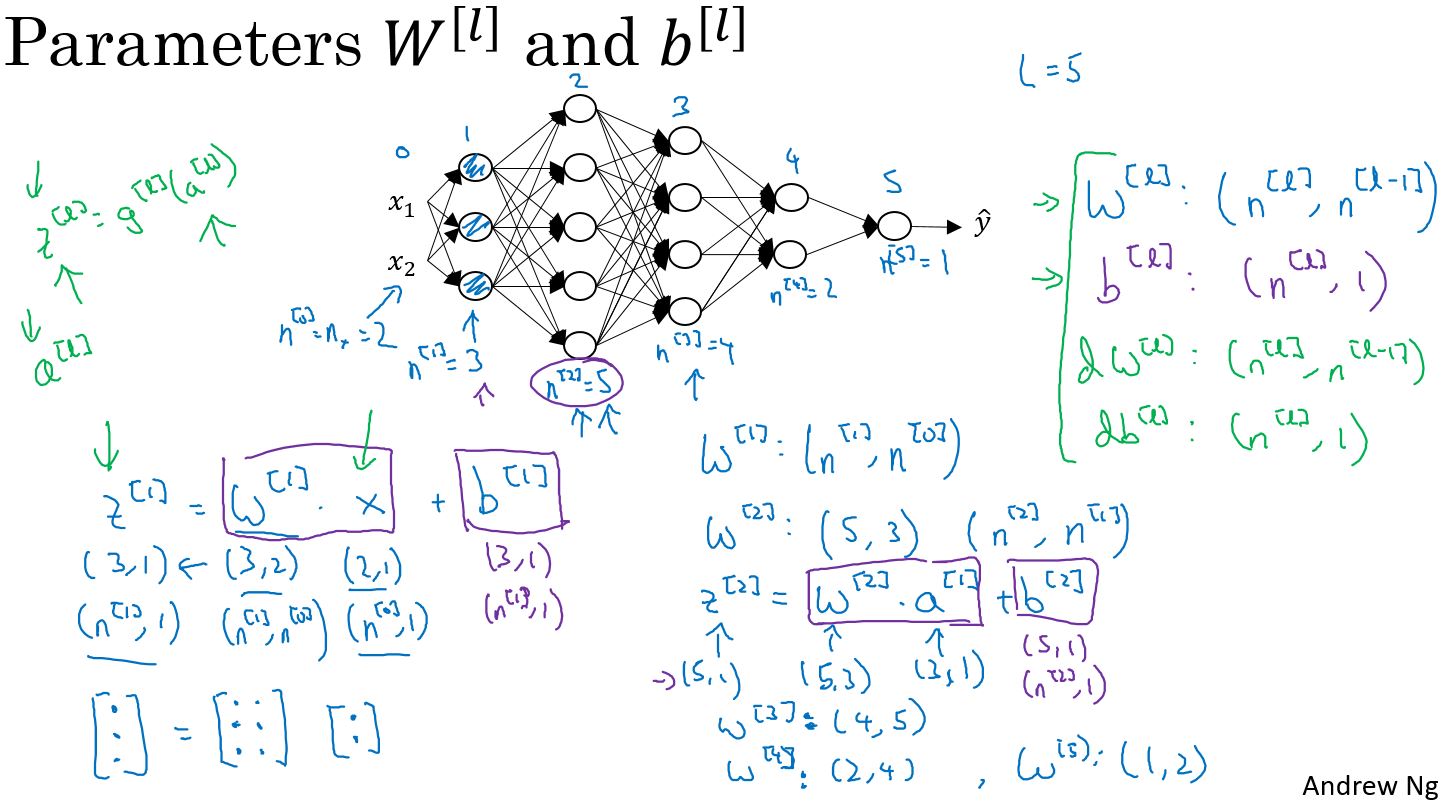 Parameters W^[l] and b^[l]
L = 5
0 1 2 3 4 5
x₁
x₂
ŷ
n^[0] = n_x = 2
n^[1] = 3
n^[2] = 5
n^[3] = 4
n^[4] = 2
n^[5] = 1
z^[l] = g^[l](a^[l])
a^[l]
W^[l] : (n^[l], n^[l-1])
b^[l] : (n^[l], 1)
dW^[l] : (n^[l], n^[l-1])
db^[l] : (n^[l], 1)
z^[1] = W^[1] · x + b^[1]
(3,1) ← (3,2) (2,1) (3,1)
(n^[1], 1) (n^[1], n^[0]) (n^[0], 1) (n^[1], 1)
W^[1] : (n^[1], n^[0])
W^[2] : (5,3) (n^[2], n^[1])
z^[2] = W^[2] · a^[1] + b^[2]
→ (5,1) (5,3) (3,1) (5,1)
(n^[2], 1)
W^[3] : (4,5)
W^[4] : (2,4) , W^[5] : (1,2)
Andrew Ng